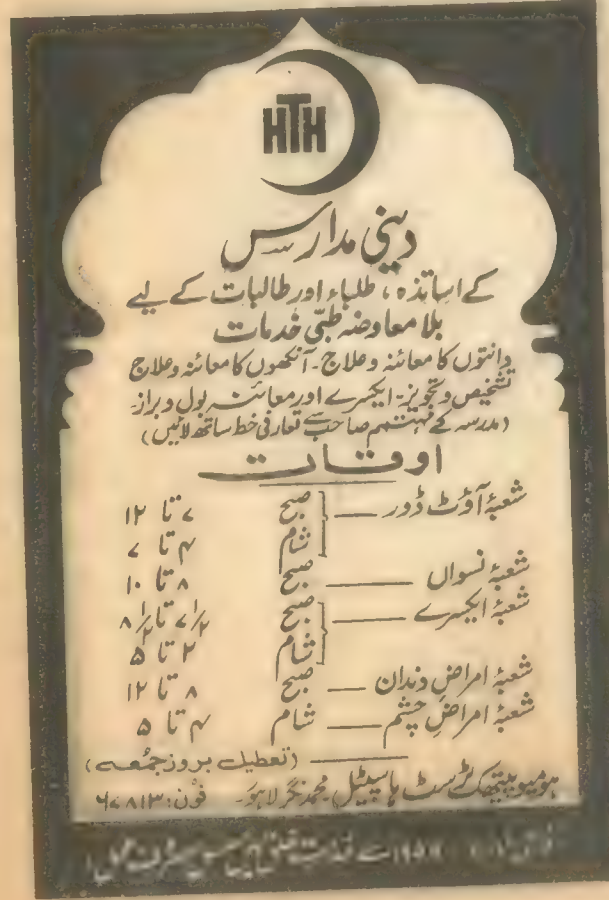 HTH
دینی مدارس
کے اساتذہ، طلباء اور طالبات کے لیے
بلا معاوضہ طبّی خدمات
دانتوں کا معائنہ و علاج ۔ آنکھوں کا معائنہ و علاج
تشخیص و تجویز ۔ ایکسرے اور معائنہ بول و براز ۔
(مدرسہ کے مہتمم صاحب سے تعارفی خط ساتھ لائیں)
اوقات
شعبۂ آؤٹ ڈور — صبح ۷ تا ۱۲
شام ۴ تا ۷
شعبۂ نسواں — صبح ۸ تا ۱۰
شعبۂ ایکسرے — صبح ۷ ۱/۲ تا ۸ ۱/۲
شام ۲ تا ۵
شعبۂ امراضِ دندان — صبح ۸ تا ۱۲
شعبۂ امراضِ چشم — شام ۴ تا ۵
(تعطیل بروز جمعہ)
ہومیوپیتھک ٹرسٹ ہاسپٹل ۔ محمد نگر لاہور ۔ فون: ۶۷۸۱۳
سے خدمتِ خلق میں